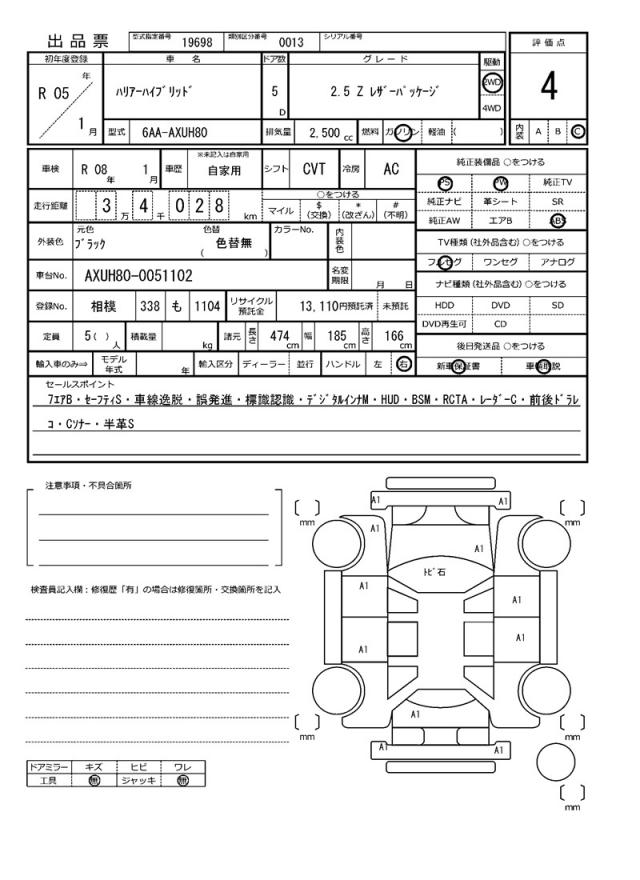 出品票 型式指定番号 19698 類別区分番号 0013 シリアル番号
初年度登録 車名 ドア数 グレード 駆動 評価点
R 05 年 1 月 ﾊﾘｱｰﾊｲﾌﾞﾘｯﾄﾞ 5 D 2.5 Z ﾚｻﾞｰﾊﾟｯｹｰｼﾞ 2WD 4WD 4
型式 6AA-AXUH80 排気量 2,500 cc 燃料 ガソリン 軽油 ( ) 内装 A B C
車検 R 08 年 1 月 車歴 ※未記入は自家用 自家用 シフト CVT 冷房 AC
走行距離 3 万 4 千 0 2 8 km ○をつける マイル $ (交換) * (改ざん) # (不明)
外装色 元色 ﾌﾞﾗｯｸ 色替 ( 色替無 ) カラーNo. 内装色
車台No. AXUH80-0051102 名変期限 月 日
登録No. 相模 338 も 1104 リサイクル預託金 13,110円預託済 未預託
定員 5 ( ) 人 積載量 kg 諸元 長さ 474 cm 幅 185 cm 高さ 166 cm
輸入車のみ⇒ モデル年式 年 輸入区分 ディーラー 並行 ハンドル 左 右
純正装備品 ○をつける
PS PW 純正TV
純正ナビ 革シート SR
純正AW エアB ABS
TV種類 (社外品含む) ○をつける
フルセグ ワンセグ アナログ
ナビ種類 (社外品含む) ○をつける
HDD DVD SD
DVD再生可 CD
後日発送品 ○をつける
新車保証書 車輌取説
セールスポイント
7ｴｱB・ｾｰﾌﾃｨS・車線逸脱・誤発進・標識認識・ﾃﾞｼﾞﾀﾙｲﾝﾅM・HUD・BSM・RCTA・ﾚｰﾀﾞｰC・前後ﾄﾞﾗﾚ
ｺ・Cｿﾅｰ・半革S
注意事項・不具合箇所
検査員記入欄：修復歴「有」の場合は修復箇所・交換箇所を記入
ドアミラー キズ ヒビ ワレ
工具 無 ジャッキ 無
A1 A1
[ ] mm [ ] mm
A1 A1
ﾄﾋﾞ石
A1 A1
A1 A1
A1 A1
[ ] mm [ ] mm
A1 A1
[ ] mm